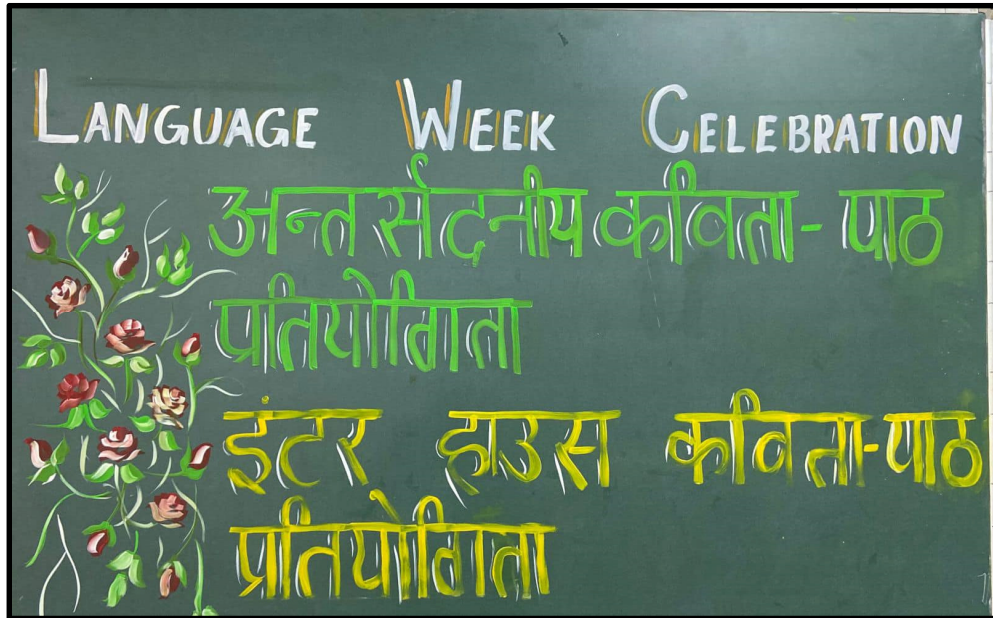 LANGUAGE WEEK CELEBRATION
अन्तर्सदनीय कविता-पाठ
प्रतियोगिता
इंटर हाउस कविता-पाठ
प्रतियोगिता